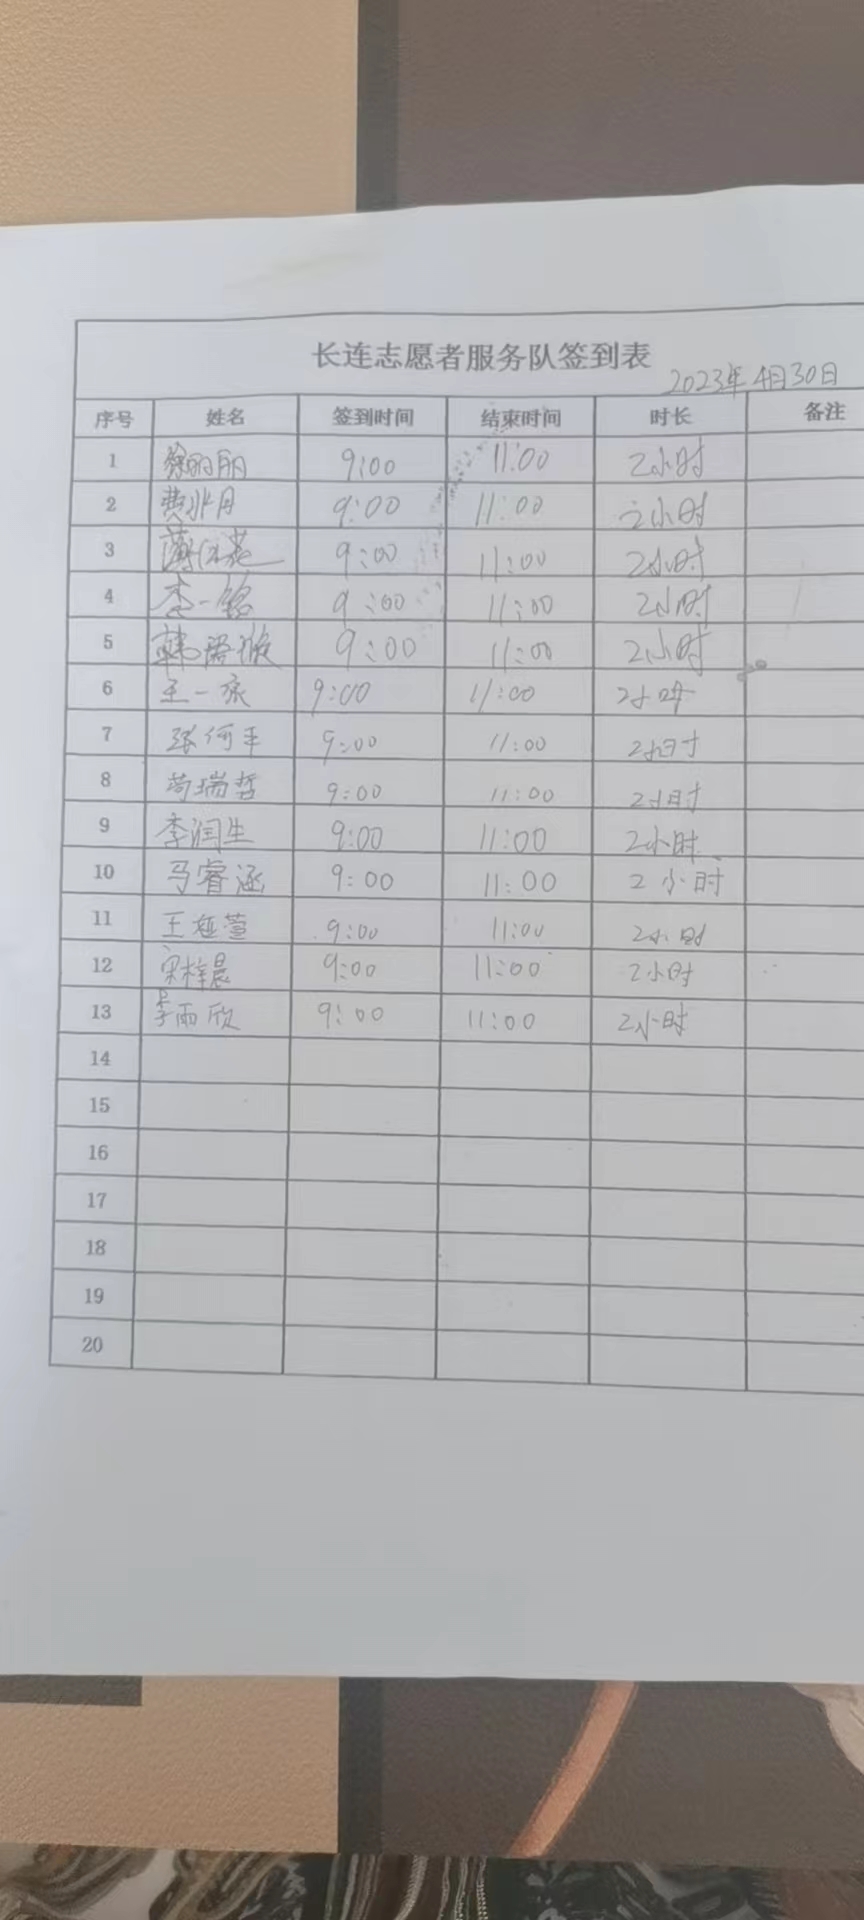 长连志愿者服务队签到表
2023年4月30日
序号 姓名 签到时间 结束时间 时长 备注
1 徐明丽 9:00 11:00 2小时
2 费兆月 9:00 11:00 2小时
3 9:00 11:00 2小时
4 李一铭 9:00 11:00 2小时
5 韩 9:00 11:00 2小时
6 王一 9:00 11:00 2小时
7 张何丰 9:00 11:00 2小时
8 苟瑞哲 9:00 11:00 2小时
9 李润生 9:00 11:00 2小时
10 马睿涵 9:00 11:00 2小时
11 王 萱 9:00 11:00 2小时
12 宋梓晨 9:00 11:00 2小时
13 李雨欣 9:00 11:00 2小时
14
15
16
17
18
19
20